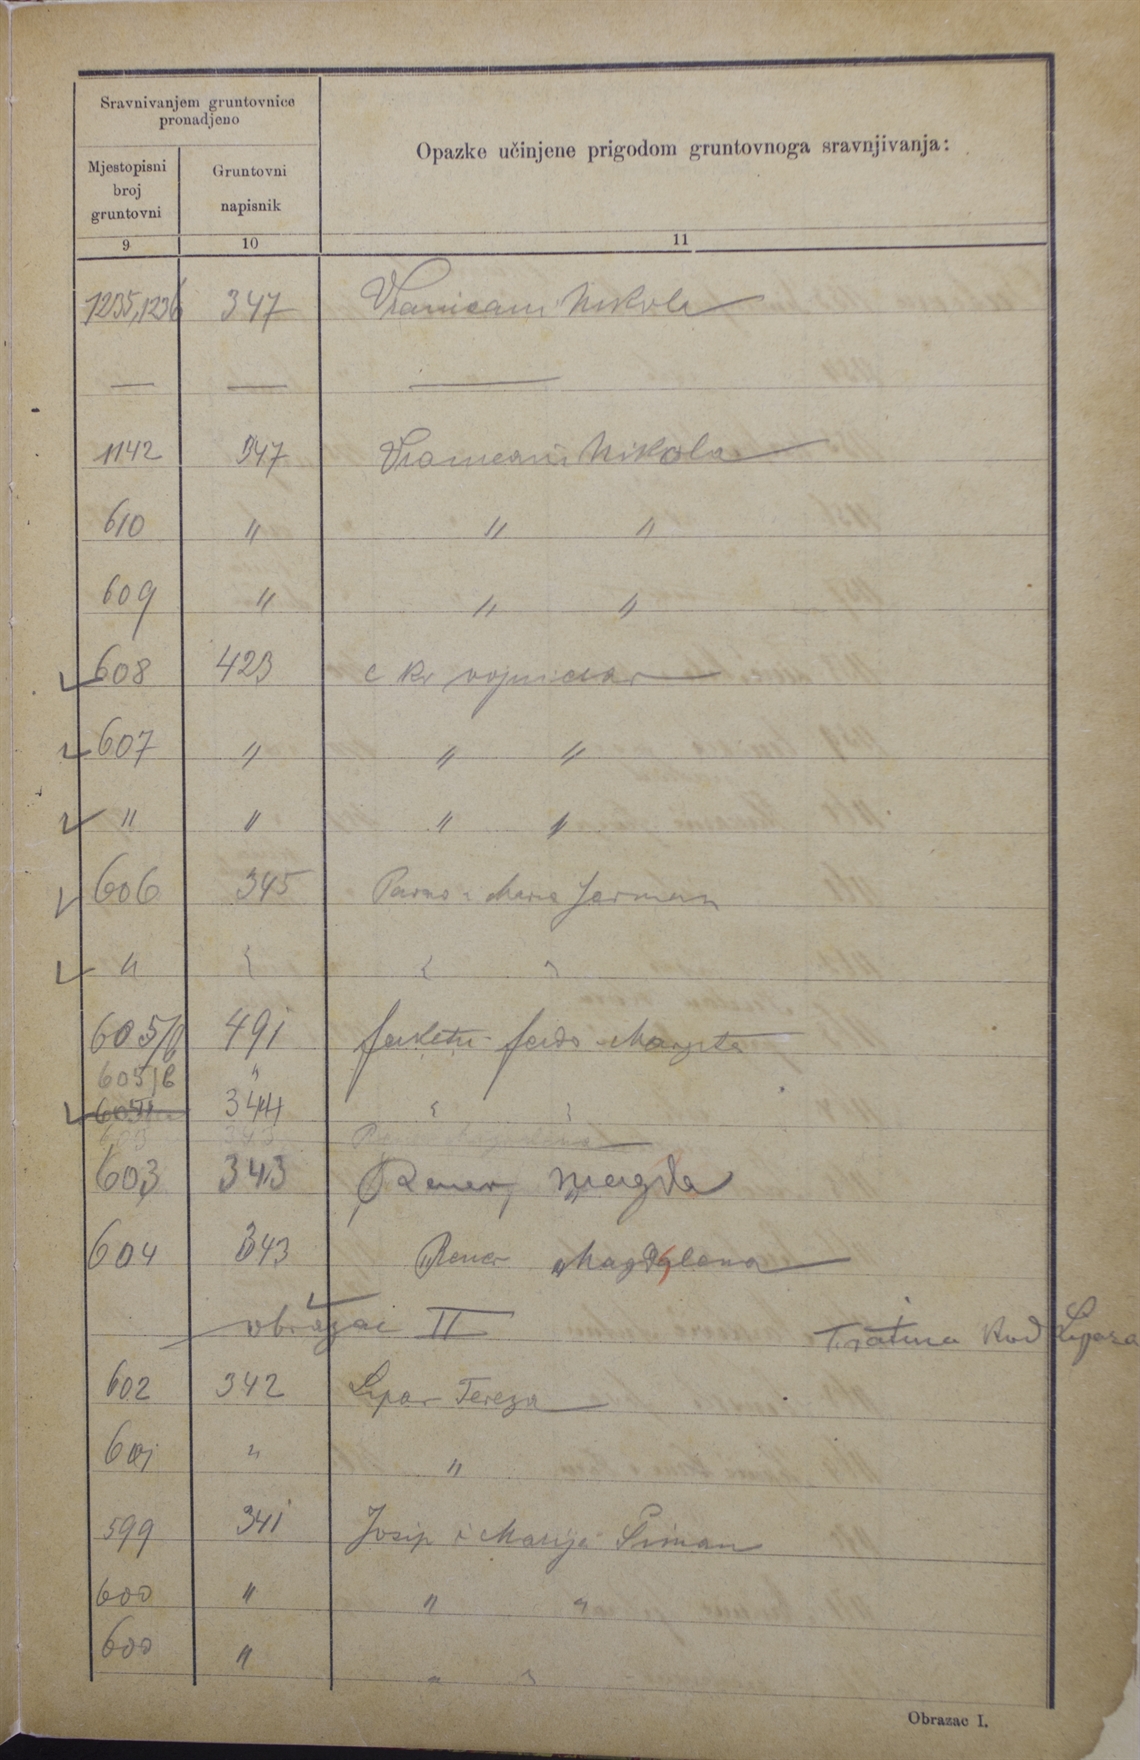 Sravnivanjem gruntovnice
pronadjeno
Opazke učinjene prigodom gruntovnoga sravnjivanja:
Mjestopisni
broj
gruntovni
Gruntovni
napisnik
9 10 11
1235,1236 347 Vranicani Nikola
— — —
1142 347 Vranicani Nikola
610 " " "
609 " " "
608 423 c kr
607 " " "
" " " "
606 345 Maria Jerman
" " " "
605/ 491
605/b "
344 " "
603 343 Rener, Magda
604 343 Rener Magdalena
obrazac II Tratina kod Lipara
602 342 Lipar Tereza
601 " "
599 341 Josip i Marija Šiman
600 " " "
600 " " "
Obrazac I.